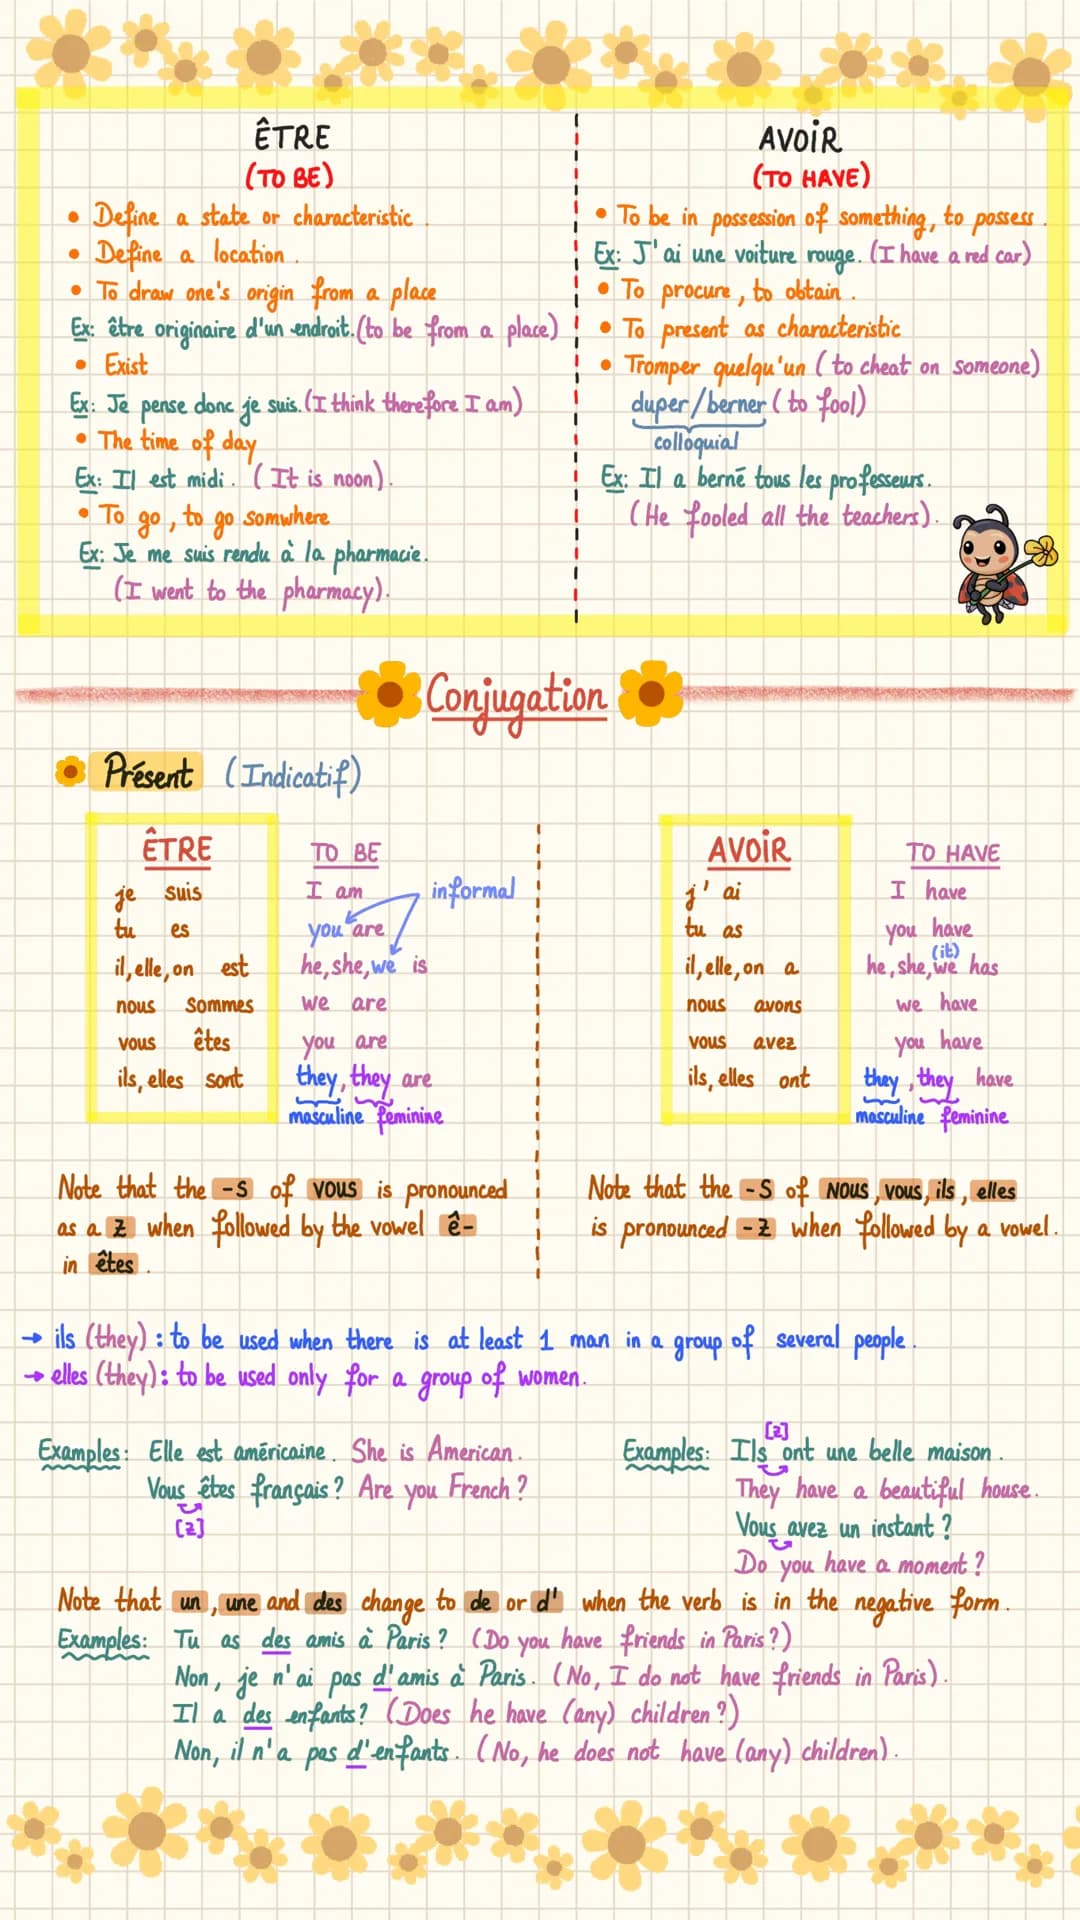 ÊTRE
(TO BE)
• Define a state or characteristic.
• Define a location.
• To draw one's origin from a place
Ex: être originaire d'un endroit. (to be from a place)
• Exist
Ex: Je pense donc je suis. (I think therefore I am)
• The time of day
Ex: Il est midi. (It is noon).
• To go, to go somwhere
Ex: Je me suis rendu à la pharmacie.
(I went to the pharmacy).
AVOIR
(TO HAVE)
• To be in possession of something, to possess.
Ex: J'ai une voiture rouge. (I have a red car)
• To procure, to obtain.
• To present as characteristic
• Tromper quelqu'un (to cheat on someone)
duper/berner (to fool)
colloquial
Ex: Il a berné tous les professeurs.
(He fooled all the teachers).
Conjugation
Présent (Indicatif)
ÊTRE
je suis
tu es
il, elle, on est
nous sommes
vous êtes
ils, elles sont
TO BE
I am
informal
you are
he, she, we is
we are
you are
they, they are
masculine feminine
AVOIR
j' ai
tu as
il, elle, on a
nous avons
vous avez
ils, elles ont
TO HAVE
I have
you have
(it)
he, she, we has
we have
you have
they, they have
masculine feminine
Note that the -s of vous is pronounced
as a z when followed by the vowel ê-
in êtes.
Note that the -s of nous, vous, ils, elles
is pronounced -z when followed by a vowel.
→ ils (they) : to be used when there is at least 1 man in a group of several people.
→ elles (they): to be used only for a group of women.
Examples: Elle est américaine. She is American.
Vous êtes français? Are you French?
[z]
[z]
Examples: Ils ont une belle maison.
They have a beautiful house.
Vous avez un instant?
Do you have a moment?
Note that un, une and des change to de or d' when the verb is in the negative form.
Examples: Tu as des amis à Paris? (Do you have friends in Paris?)
Non, je n'ai pas d'amis à Paris. (No, I do not have friends in Paris).
Il a des enfants? (Does he have (any) children?)
Non, il n'a pas d'enfants. (No, he does not have (any) children).